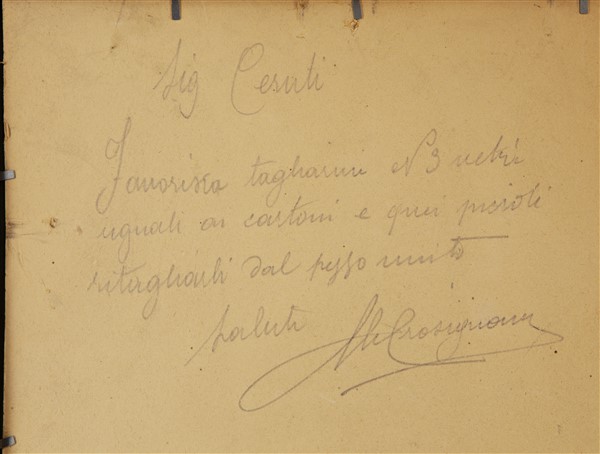 Sig Ceruti
Favorisca tagliarmi N 3 vetri
uguali ai cartoni e quei piccoli
ritagliarli dal pezzo unito
Saluti